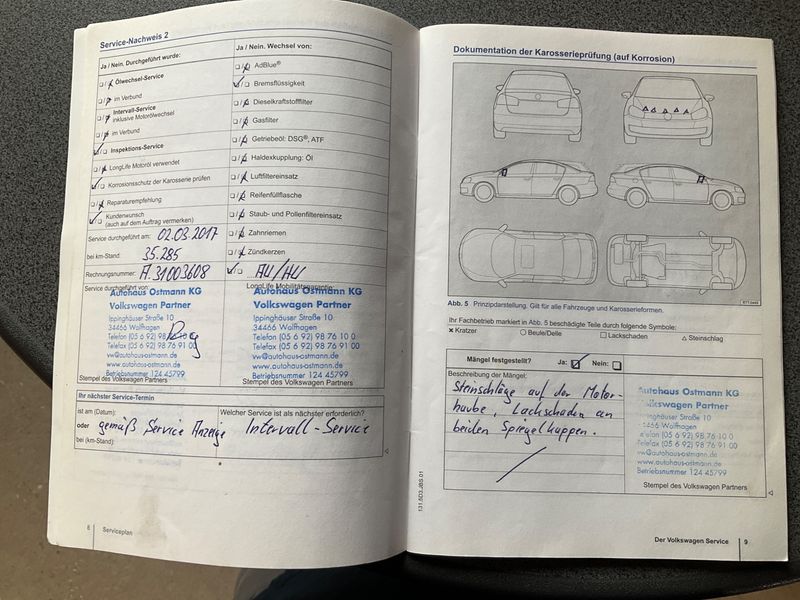 Service-Nachweis 2
Ja / Nein. Durchgeführt wurde:
Ölwechsel-Service
im Verbund
Intervall-Service
inklusive Motorölwechsel
im Verbund
Inspektions-Service
LongLife Motoröl verwendet
Korrosionsschutz der Karosserie prüfen
Reparaturempfehlung
Kundenwunsch
(auch auf dem Auftrag vermerken)
Service durchgeführt am: 02.03.2017
bei km-Stand: 35.285
Rechnungsnummer: A.31003608
Service durchgeführt von:
Autohaus Ostmann KG
Volkswagen Partner
Ippinghäuser Straße 10
34466 Wolfhagen
Telefon (05 6 92) 98 76 10 0
Telefax (05 6 92) 98 76 91 00
vw@autohaus-ostmann.de
www.autohaus-ostmann.de
Betriebsnummer 124 45799
Stempel des Volkswagen Partners
Ja / Nein. Wechsel von:
AdBlue®
Bremsflüssigkeit
Dieselkraftstofffilter
Gasfilter
Getriebeöl: DSG®, ATF
Haldexkupplung: Öl
Luftfiltereinsatz
Reifenfüllflasche
Staub- und Pollenfiltereinsatz
Zahnriemen
Zündkerzen
AU/HU
LongLife Mobilitätsgarantie:
Autohaus Ostmann KG
Volkswagen Partner
Ippinghäuser Straße 10
34466 Wolfhagen
Telefon (05 6 92) 98 76 10 0
Telefax (05 6 92) 98 76 91 00
vw@autohaus-ostmann.de
www.autohaus-ostmann.de
Betriebsnummer 124 45799
Stempel des Volkswagen Partners
Ihr nächster Service-Termin
ist am (Datum):
oder gemäß Service Anzeige
bei (km-Stand):
Welcher Service ist als nächster erforderlich?
Intervall-Service
Serviceplan
Dokumentation der Karosserieprüfung (auf Korrosion)
Abb. 5 Prinzipdarstellung. Gilt für alle Fahrzeuge und Karosserieformen.
Ihr Fachbetrieb markiert in Abb. 5 beschädigte Teile durch folgende Symbole:
Kratzer Beule/Delle Lackschaden Steinschlag
Mängel festgestellt? Ja: Nein:
Beschreibung der Mängel:
Steinschläge auf der Motor-
haube, Lackschaden an
beiden Spiegelkappen.
Autohaus Ostmann KG
Volkswagen Partner
Ippinghäuser Straße 10
34466 Wolfhagen
Telefon (05 6 92) 98 76 10 0
Telefax (05 6 92) 98 76 91 00
vw@autohaus-ostmann.de
www.autohaus-ostmann.de
Betriebsnummer 124 45799
Stempel des Volkswagen Partners
131.5D3.JBS.01
Der Volkswagen Service 9